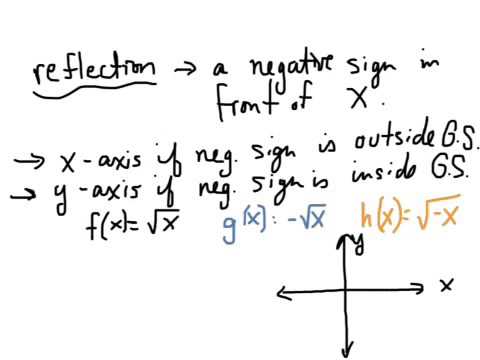 reflection → a negative sign in
front of X.
→ x-axis if neg. sign is outside G.S.
→ y-axis if neg. sign is inside G.S.
f(x)=√x g(x)=-√x h(x)=√-x
y
x